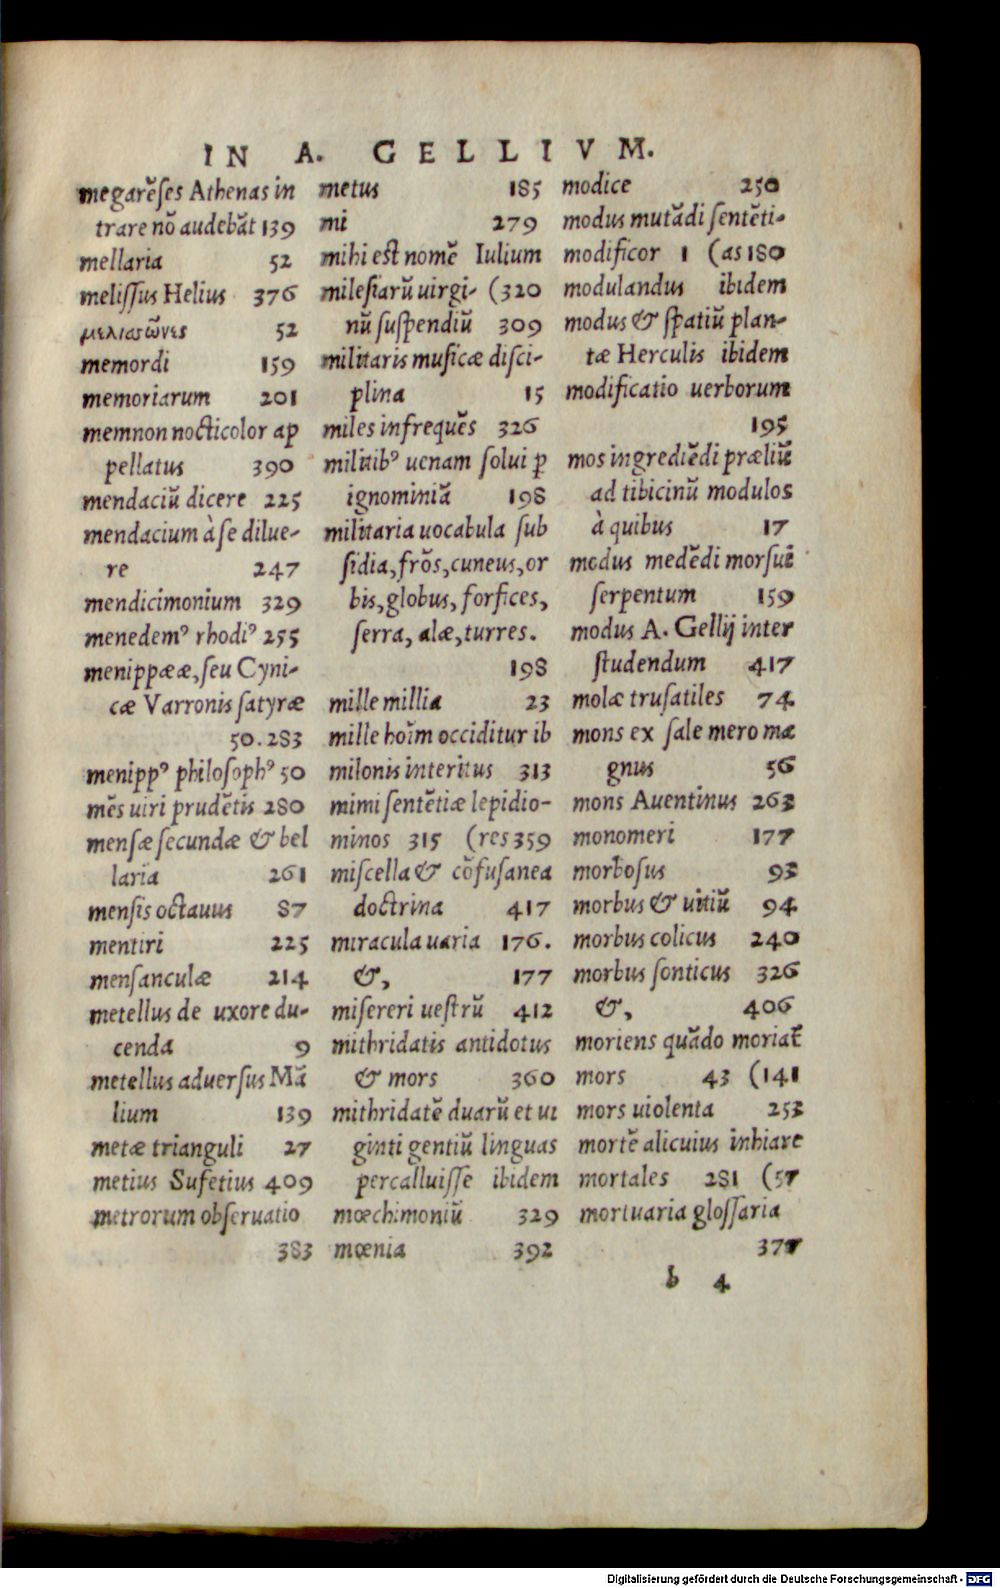 IN A. GELLIVM.
megarēses Athenas in
trare nō audebāt 139
mellaria 52
melissus Helius 376
52
memordi 159
memoriarum 201
memnon nocticolor ap
pellatus 390
mendaciū dicere 225
mendacium à se dilue-
re 247
mendicimonium 329
menedemꝰ rhodiꝰ 255
menippææ, seu Cyni-
cæ Varronis satyræ
50.283
menippꝰ philosophꝰ 50
mēs uiri prudētis 280
mensæ secundæ & bel
laria 261
mensis octauus 87
mentiri 225
mensanculæ 214
metellus de uxore du-
cenda 9
metellus aduersus Mā
lium 139
metæ trianguli 27
metius Sufetius 409
metrorum obseruatio
383
metus 185
mi 279
mihi est nomē Iulium
milesiarū uirgi- (320
nū suspendiū 309
militaris musicæ disci-
plina 15
miles infrequēs 326
militibꝰ uenam solui ꝑ
ignominiā 198
militaria uocabula sub
sidia, frōs, cuneus, or
bis, globus, forfices,
serra, alæ, turres.
198
mille millia 23
mille hoīm occiditur ib
milonis interitus 313
mimi sentētiæ lepidio-
minos 315 (res 359
miscella & cōfusanea
doctrina 417
miracula uaria 176.
&, 177
misereri uestrū 412
mithridatis antidotus
& mors 360
mithridatē duarū et ui
ginti gentiū linguas
percalluisse ibidem
mœchimoniū 329
mœnia 392
modice 250
modus mutādi sentēti-
modificor 1 (as 180
modulandus ibidem
modus & spatiū plan-
tæ Herculis ibidem
modificatio uerborum
195
mos ingrediēdi præliū
ad tibicinū modulos
à quibus 17
modus medēdi morsui
serpentum 159
modus A. Gellij inter
studendum 417
molæ trusatiles 74
mons ex sale mero ma
gnus 56
mons Auentinus 263
monomeri 177
morbosus 93
morbus & uitiū 94
morbus colicus 240
morbus sonticus 326
&, 406
moriens quādo moriat̄
mors 43 (141
mors uiolenta 253
mortē alicuius inhiare
mortales 281 (57
mortuaria glossaria
377
b 4
Digitalisierung gefördert durch die Deutsche Forschungsgemeinschaft - DFG